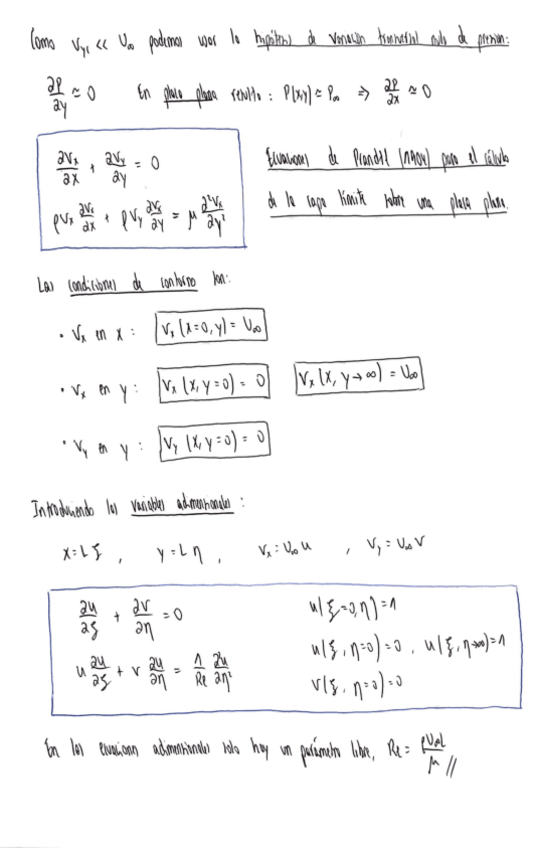 Como Vyc << U∞ podemos usar la hipótesis de variación transversal nula de presión:
∂P/∂y ≃ 0 En placa plana resulta: P(x,y) ≃ P∞ ⇒ ∂P/∂x ≃ 0
∂Vx/∂x + ∂Vy/∂y = 0
ρVx ∂Vx/∂x + ρVy ∂Vx/∂y = μ ∂²Vx/∂y²
Ecuaciones de Prandtl (1904) para el cálculo
de la capa límite sobre una placa plana.
Las condiciones de contorno son:
• Vx en x: Vx (x=0, y) = U∞
• Vx en y: Vx (x, y=0) = 0 Vx (x, y→∞) = U∞
• Vy en y: Vy (x, y=0) = 0
Introduciendo las variables adimensionales:
x = L ξ , y = L η , Vx = U∞ u , Vy = U∞ v
∂u/∂ξ + ∂v/∂η = 0 u(ξ=0, η) = 1
u ∂u/∂ξ + v ∂u/∂η = 1/Re ∂²u/∂η² u(ξ, η=0) = 0 , u(ξ, η→∞) = 1
v(ξ, η=0) = 0
En las ecuaciones adimensionales solo hay un parámetro libre, Re = ρU∞L/μ //